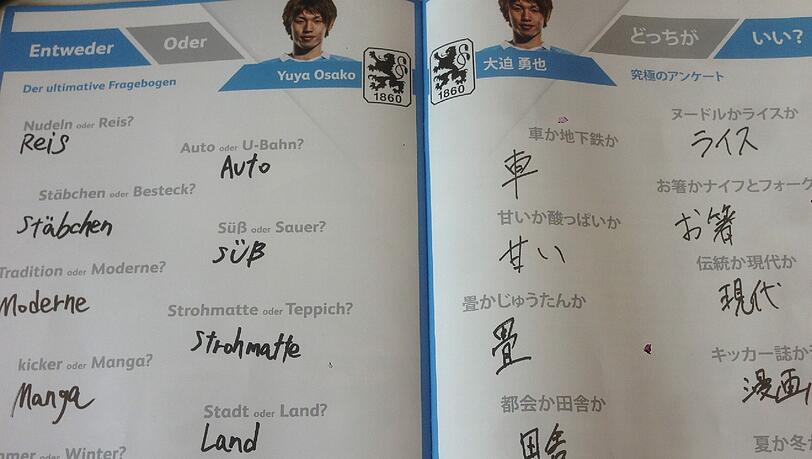 Entweder Oder
Yuya Osako
1860
Der ultimative Fragebogen
Nudeln oder Reis?
Reis
Auto oder U-Bahn?
Auto
Stäbchen oder Besteck?
Stäbchen
Süß oder Sauer?
süß
Tradition oder Moderne?
Moderne
Strohmatte oder Teppich?
Strohmatte
kicker oder Manga?
Manga
Stadt oder Land?
Land
oder Winter?
どっちが いい?
大迫 勇也
1860
究極のアンケート
ヌードルかライスか
ライス
車か地下鉄か
車
お箸かナイフとフォーク
お箸
甘いか酸っぱいか
甘い
伝統か現代か
現代
畳かじゅうたんか
畳
キッカー誌か
漫画
都会か田舎か
田舎
夏か冬か